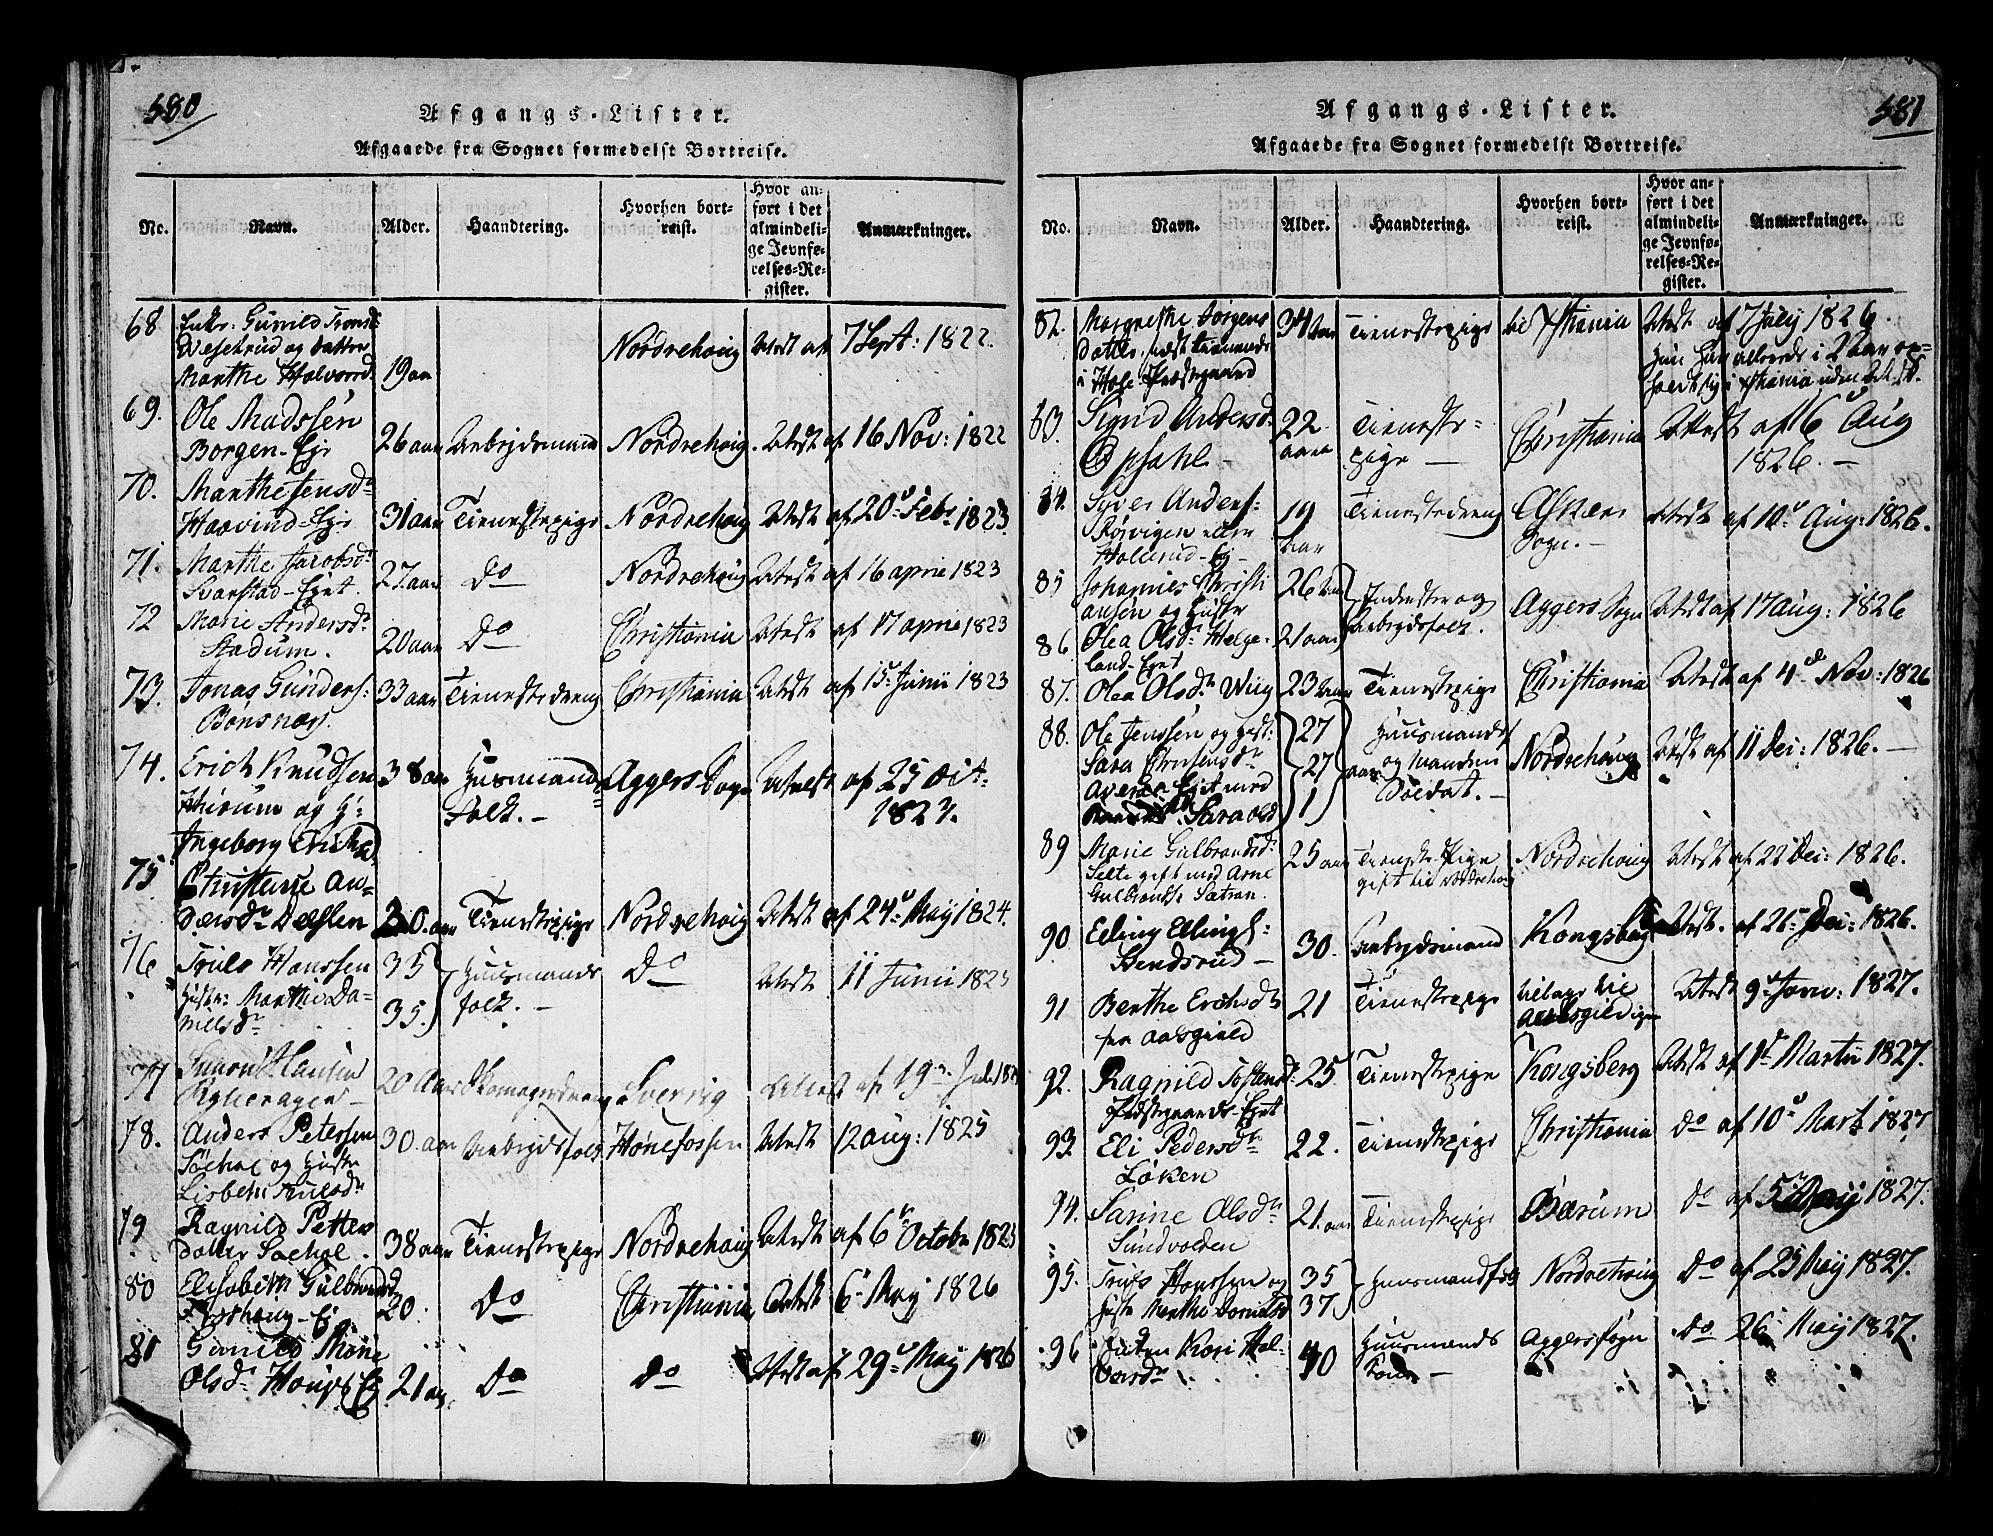 580
Afgangs-Lister.
Afgaaede fra Sognet formedelst Bortreise.
No. Navn. Alder. Haandtering. Hvorhen bortreist. Hvor anført i det almindelige Jevnførelses-Register. Anmærkninger.
68 Enke: Gunild Tronsd
og Datter
Marthe Halvorsd. 19 aar Nordrehoug Attest af 7 Sept: 1822.
69. Ole Madssen
Borgen-Eje 26 aar Arbejdsmand Nordrehoug. Attest af 16 Nov: 1822
70. Marthe Jensdr
Haavind-Eje 31 aar Tienestepige Nordrehoug Attest af 20 Febr 1823.
71. Marthe Jacobsdr
Svarstad-Ejet. 27 aar Do Nordrehoug Attest af 16 april 1823
72 Marie Andersdr
Stadum. 20 aar Do Christiania Attest af 17 april 1823
73. Jonas Gunders:
Bønsnæs. 33 aar Tienestedreng Christiania Attest af 15 Junii 1823
74. Erich Knudsen
og H:
Ingeborg Erichsd 38 aar Huusmands
Folk. - Aggers Sogn Attest af 25 Oct.
1823.
75 Christense An=
dersdr Dæhlen 20. aar Tienestepige Nordrehoug Attest af 24 May 1824.
76 Truls Hanssen
Hustr: Marthe Da=
nielsdr 35
35. Huusmands
folk. - Do Attest 11 Junii 1825
77 Simon Hansen
20 Aar Skomagerdreng Sverrig Attest af 19 Jul
78. Anders Petersen
Søehol og Hustr
Lisbeth Trulsdr 30. aar Arbejdsfolk Hønefossen Attest 12 aug: 1825
79 Ragnild Petters
datter Søehol. 38 aar Tienestepige Nordrehoug Attest af 6 Octobr 1825
80 Elisabeth Gulbrandsd
20. Do Christiania Attest 6 May 1826
81 Gunild Marie
Olsdr 21 aar Do Do Attest af 29 May 1826
581
Afgangs-Lister.
Afgaaede fra Sognet formedelst Bortreise.
No. Navn. Alder. Haandtering. Hvorhen bortreist. Hvor anført i det almindelige Jevnførelses-Register. Anmærkninger.
82. Margrethe Jørgens
datter, sidst tienende
i Hole Præstegaard 34 aar Tienestepige til Xstiania Attest af 7 July 1826.
Hun har allerede i 2 Aar op=
holdt sig i Xstiania uden Attest.
83. Sigrid Andersd
Opsahl - 22
aar Tieneste-
pige - Christiania Attest af 6 Aug
1826. -
84. Syver Anders:
Rørvigen eller
Hollerud-Ej- 19
aar Tienestedreng Askers
Sogn. - Attest af 10 Aug: 1826.
85 Johannes Christi
ansen og Hustr 26 aar Inderster og
arbejdsfolk. Aggers Sogn Attest af 17 aug: 1826
86 Olea Olsdr Helge-
land-Ejet 21 aar
87. Olea Olsdr Wiig 23 aar Tienestepige Christiania Attest af 4 Nov: 1826
88. Ole Jenssen og Hust:
Sara Christensdr
Averøe-Ejet med
Sara old 27
27 aar
1 Huusmands
og Manden
Soldat. - Nordrehoug Attest af 11 Dec: 1826. -
89 Marie Gulbrandsdr
Selte gift med Arne
Gulbrandss Sætran. 25 aar Tieneste Pige
gift til Nordrehoug Nordrehoug Attest af 22 Dec: 1826.
90. Elling Ellings:
Bendsrud - 30. arbejdsmand Kongsberg Attest. af 26 Dec: 1826.
91 Berthe Erichsdr
fra Aalsgield 21 Tienestepige tilbage til
Aalsgield igien Attest 9 Janv: 1827.
92. Ragnild Tostensd.
Præstgaards-Ejet 25. Tienestepige Kongsberg Attest af 1 Martii 1827.
93. Eli Pedersdr
Løken 22. Tienestepige Christiania Do af 10 Marts 1827
94. Sarine Olsdr
Sundvolden 21. aar Tienestepige Bærum Do af 5 Maij 1827.
95. Truls Hanssen og
Hustr Marthe Danielsd 35
37 Huusmandsfolk Nordrehoug Do af 25 Maij 1827.
96 Enken Kari Hal-
vorsdr 40 Huusmands
Kone - Aggers sogn Do 26 Maij 1827.